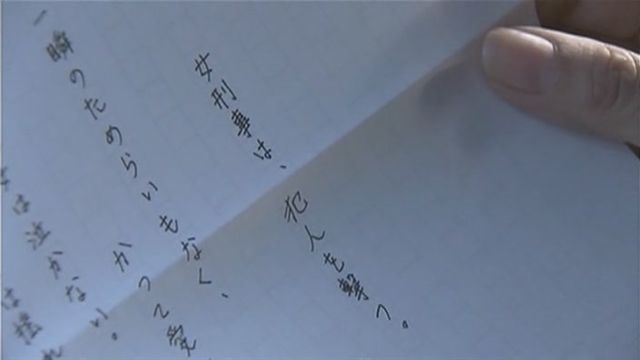 女刑事は、犯人を撃つ。
一瞬のためらいもなく、
かつて愛
は泣かない。
は
れ